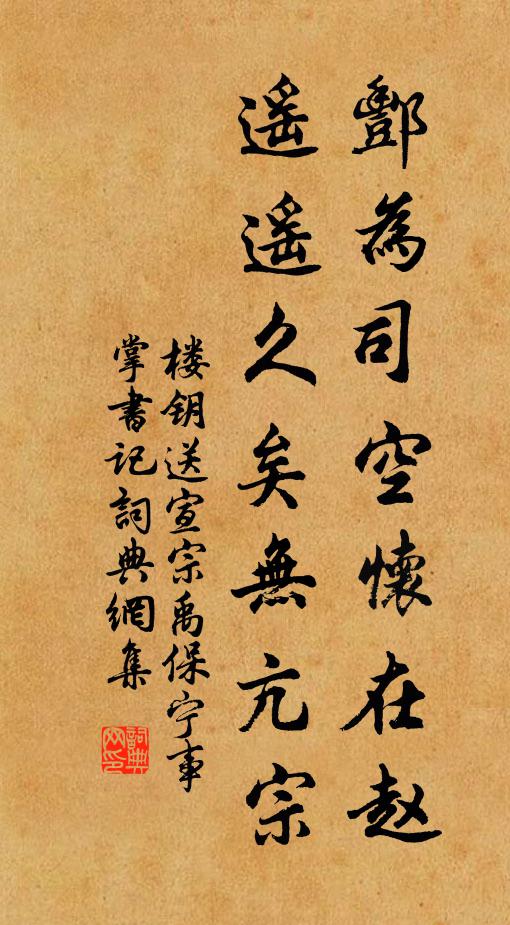 酆為司空懷在赵
遥遥久矣無亢宗
楼钥送宣宗禹保宁事
掌書记詞典網集
詞典网印